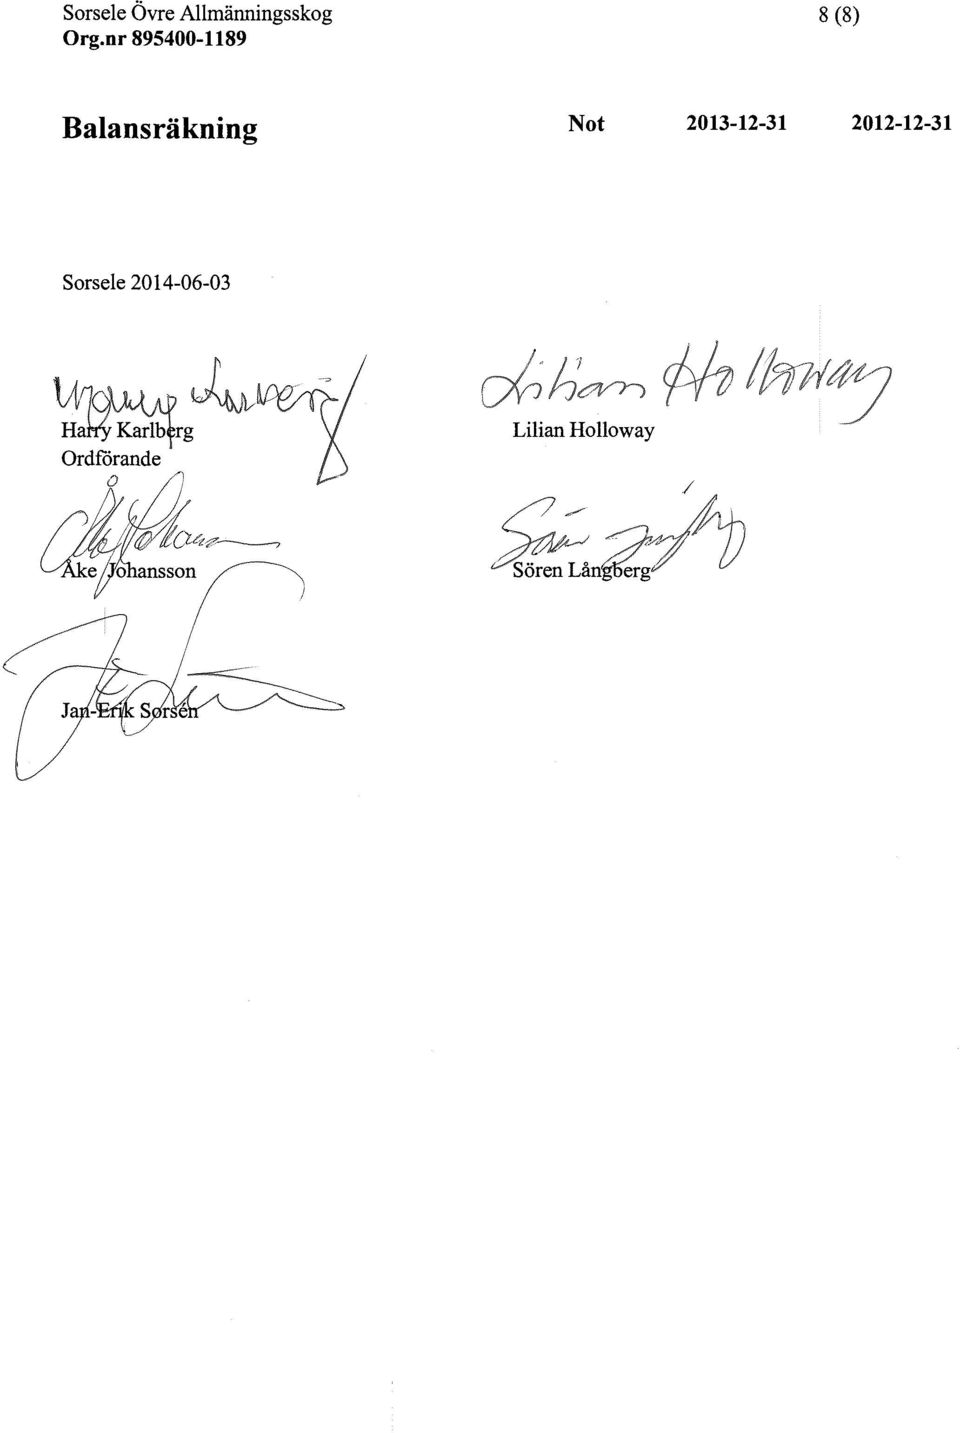 Sorsele Övre Allmänningsskog 8 (8)
Org.nr 895400-1189
Balansräkning Not 2013-12-31 2012-12-31
Sorsele 2014-06-03
Harry Karlberg Lilian Holloway
Harry Karlberg Lilian Holloway
Ordförande
Åke Johansson Sören Långberg
Åke Johansson Sören Långberg
Jan-Erik Sørsén